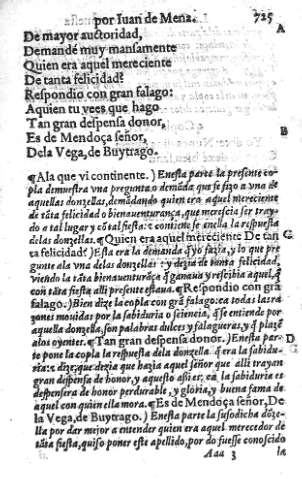 por Iuan de Mena. 725
A
De mayor auctoridad,
Demandé muy mansamente
Quien era aquel mereciente
De tanta felicidad?
Respondio con gran falago:
Aquien tu vees que hago
Tan gran despensa donor,
B
Es de Mendoça señor,
Dela Vega, de Buytrago.
¶Ala que vi continente.) Enesta parte la presente co-
pla demuestra vna pregunta o demãda que se fizo a vna de
aquellas donzellas, demãdando quien era aquel mereciente
de tãta felicidad o bienauenturança, que merescia ser tray-
do a tal lugar y cõ tal fiesta: e contiene se enella la respuesta
delas donzellas. ¶Quien era aquel mereciente De tan C
ta felicidad?) Esta era la demanda q̃ yo fazia, y lo que pre
gunte ala vna delas donzellas: y dezia de tanta felicidad,
viendo la tãta bienauenturãça q̃ ganaua y rescibia aquel, q̃
con tãta fiesta alli presente estaua. ¶Respondio con grã
falago.) Bien dize la copla con grã falago: ca todas las ra
zones mouidas por la sabiduria o sciencia, q̃ se entiende por
aquella donzella, son palabras dulces y falagueras, y q̃ plazẽ
alos oyentes. ¶Tan gran despensa donor.) Enesta par- D
te pone la copla la respuesta dela donzella. q̃ era la sabidu-
ria: e dize, que dezia que hazia aquel señor que alli trayan
gran despensa de honor, y aquesto assi es, ca la sabiduria es
despensera de honor perdurable, y gloria, y buena fama de
aquel con quien ella mora. ¶Es de Mendoça señor, De
la Vega, de Buytrago.) Enesta parte la susodicha dõze-
lla por dar mejor a entender quien era aquel merecedor de
tãta fiesta, quiso poner este apellido, por do fuesse conoscido
Aaa 3 la